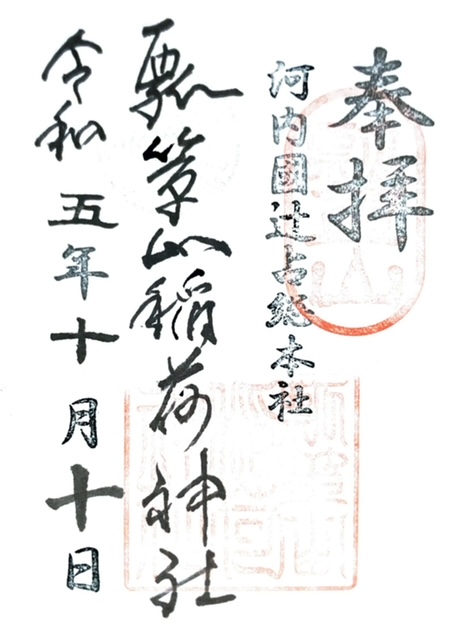 奉拝
河内國辻占総本社
瓢箪山稲荷神社
令和五年十月十日